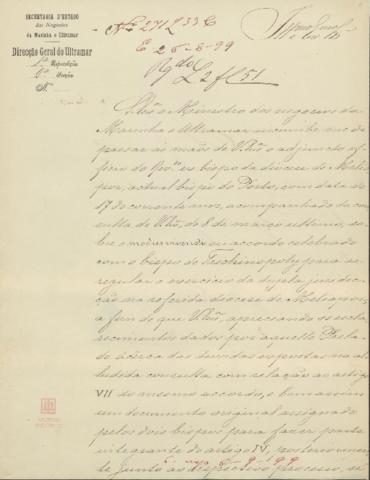 SECRETARIA D'ESTADO
dos Negocios
da Marinha e Ultramar
Direcção Geral do Ultramar
1.ª Repartição
2.ª Secção
N.º
Nº 271 L 33 C
E 26-8-99
Rgdo L 2 fl 51
o Ministro dos negocios da
Marinha e Ultramar incumbe-me de
passar ás mãos de V. Ex.ª o adjuncto of-
ficio do Rev.º ex bispo da diocese de Melia-
por, actual bispo do Porto, com data de
17 do corrente mez, acompanhado da con-
sulta de V. Ex.ª, de 8 de março ultimo, so-
bre o modus vivendi ou accordo celebrado
com o bispo de Trichinopoly para se
regular o exercicio da dupla jurisdic-
ção na referida diocese de Meliapor,
a fim de que V. Ex.ª, apreciando os escla-
recimentos dados por aquelle Prela-
do ácerca das duvidas expostas na al-
ludida consulta com relação ao artigo
VII do mesmo accordo, e bem assim
um documento original assignado
pelos dois bispos para fazer parte
integrante do artigo IV, posteriormen-
te junto ao respectivo processo, se
6-9-99